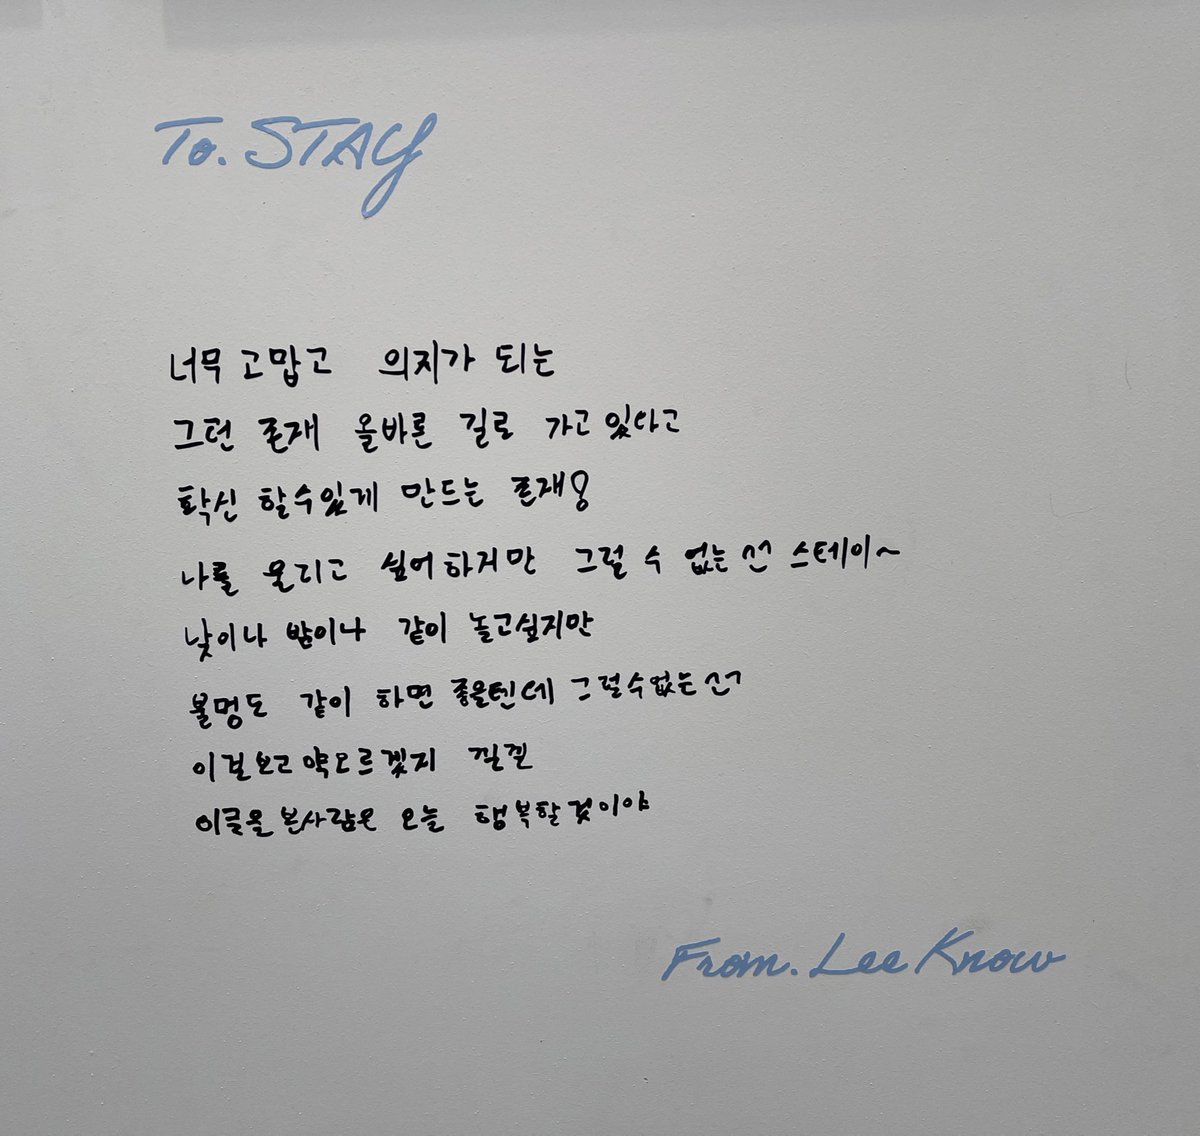 To. STAY
너무 고맙고 의지가 되는
그런 존재 올바른 길로 가고 있다고
확신 할수있게 만드는 존재!
나를 울리고 싶어하지만 그럴 수 없는 스테이~
낮이나 밤이나 같이 놀고싶지만
불멍도 같이 하면 좋을텐데 그럴수없는
이걸보고 약오르겠지 낄낄
이글을 본사람은 오늘 행복할것이야
From. Lee Know